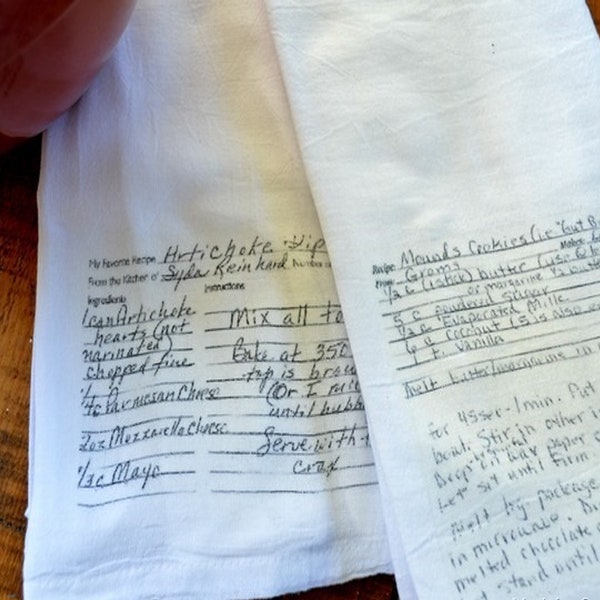 My Favorite Recipe Artichoke Dip
From the Kitchen of Syda Reinhard Number
Ingredients
Instructions
1 can Artichoke
hearts (not
marinated)
chopped fine
Parmesan Cheese
2oz Mozzarella Cheese
1/2c Mayo
Mix all to
Bake at 350
top is brow
(Or I mic
until bubb
Serve with
crax
Recipe: Mounds Cookies (i.e. "but B
From: Gromy Makes:
1/2 c (1 stick) butter (use
or margarine
5 c powdered sugar
1/2 c Evaporated Milk
6 c coconut (5 is also
1 t. vanilla
Melt butter/margarine in
for 45sec-1min. Put
bowl. Stir in other i
Drop on wax paper
Let sit until firm
Melt by package
in microwave. Di
melted chocolate
stand until